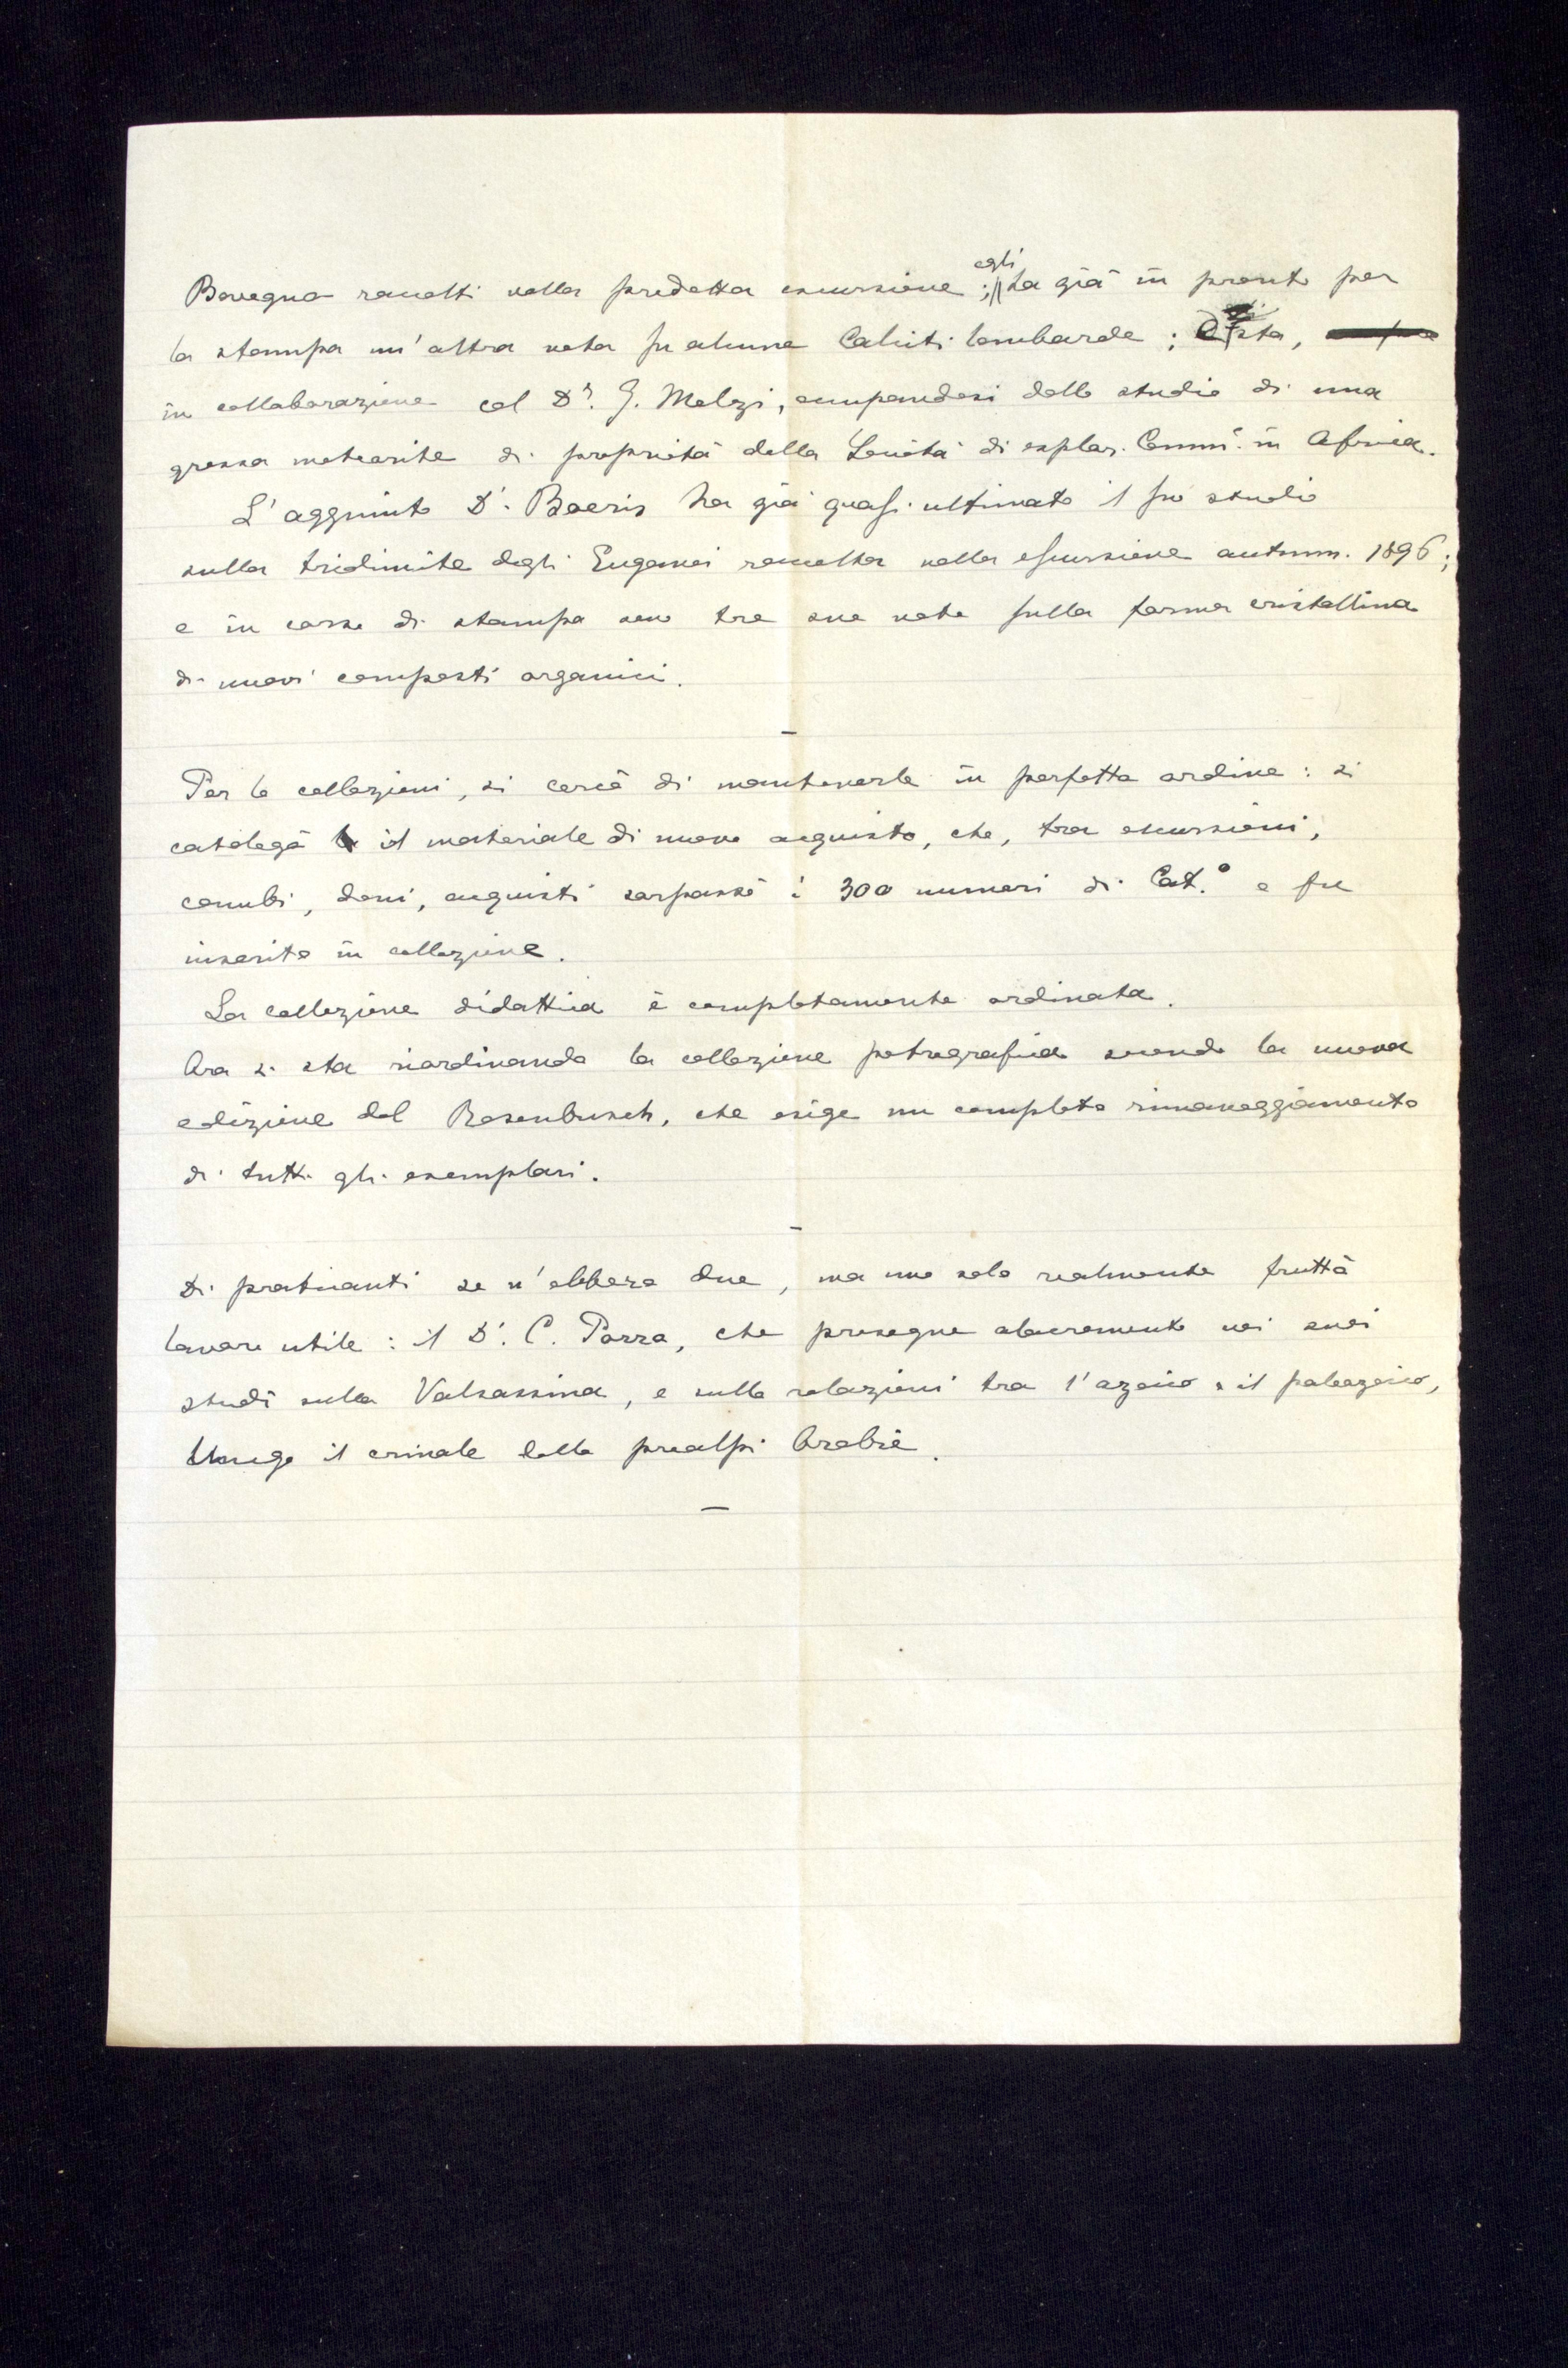 Bovegno raccolti nella predetta escursione; egli ha già in pronto per
la stampa un'altra nota su alcune Calciti lombarde; sta,
in collaborazione col Dr. G. Melzi, occupandosi dello studio di una
grossa meteorite di proprietà della Società di esplor. Comm. in Africa.
L'aggiunto Dr. Boeris ha già quasi ultimato il suo studio
sulla tridimite degli Euganei raccolta nella escursione autunn. 1896;
e in corso di stampa sono tre sue note sulla forma cristallina
di nuovi composti organici.
—
Per le collezioni, si cercò di mantenerle in perfetto ordine: si
catalogò il materiale di nuovo acquisto, che, tra escursioni,
cambi, doni, acquisti sorpassò i 300 numeri di Cat.° e fu
inserito in collezione.
La collezione didattica è completamente ordinata.
Ora si sta riordinando la collezione petrografica secondo la nuova
edizione del Rosenbusch, che esige un completo rimaneggiamento
di tutti gli esemplari.
—
Di praticanti se n'ebbero due, ma uno solo realmente fruttò
lavoro utile: il Dr. C. Porro, che prosegue alacremente nei suoi
studî sulla Valsassina, e sulle relazioni tra l'azoico e il paleozoico,
lungo il crinale delle prealpi Orobie.
—